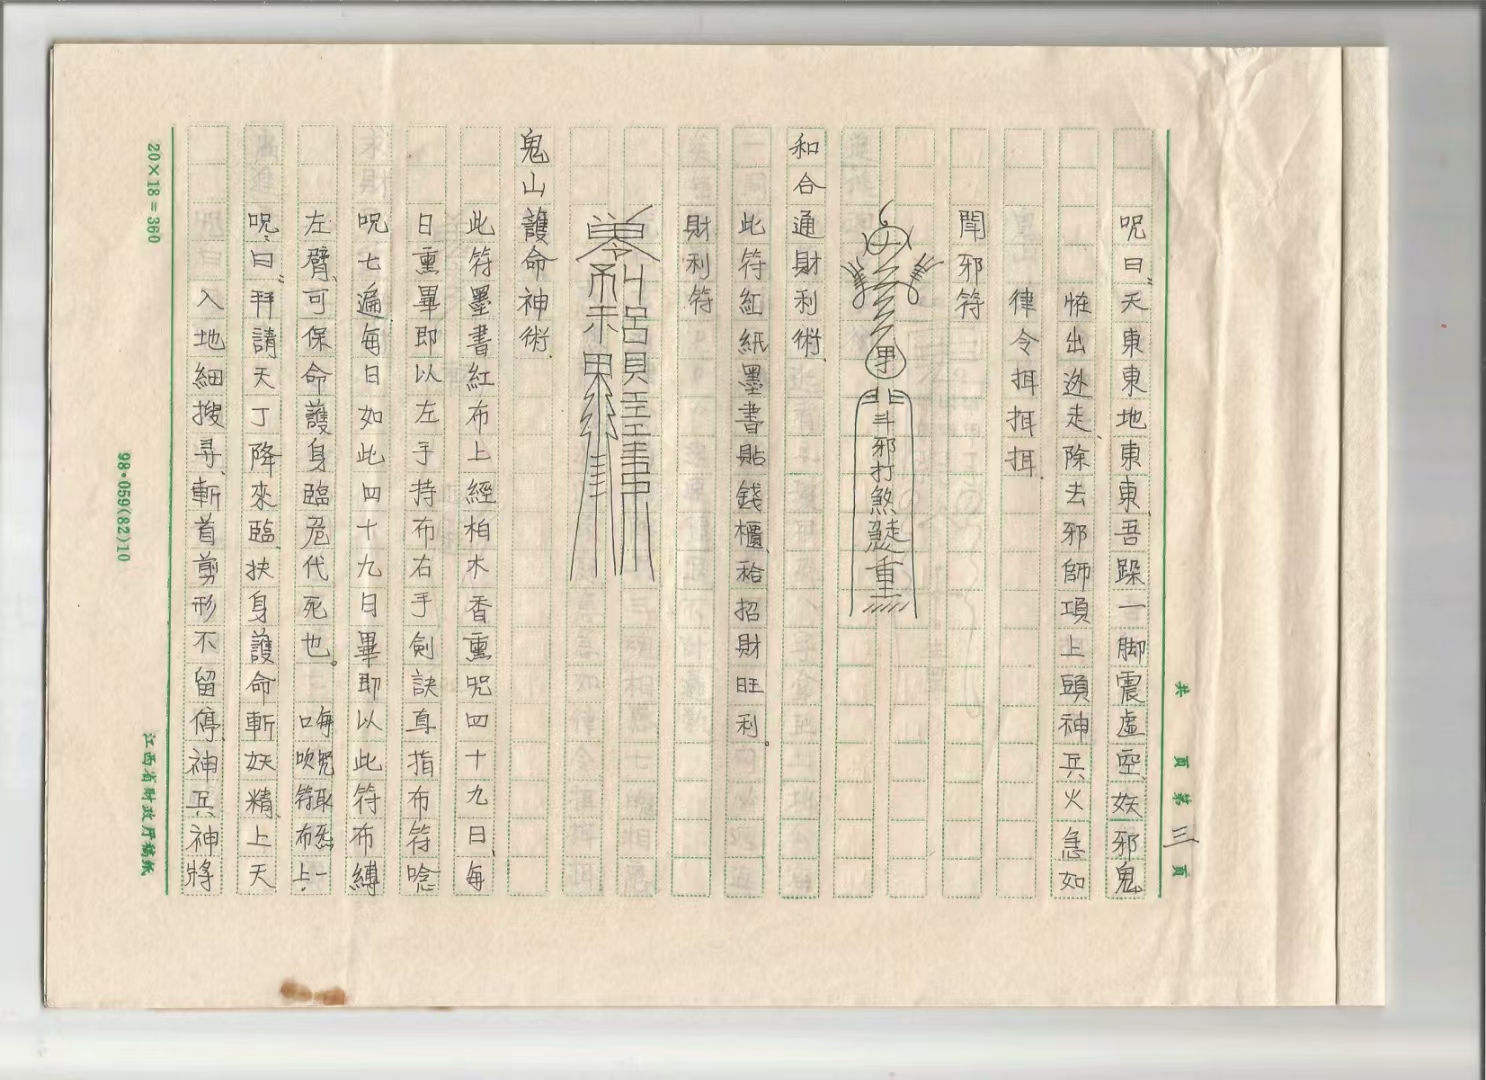 共 頁 第 三 頁
呪曰：天東東地東東、吾跺一脚震虛空、妖邪鬼
恠出迯走、除去邪師項上頭神兵火急如
律令揖揖揖.
邪符
斗邪打煞
重
和合通財利術.
此符紅紙墨書貼錢櫃、祫招財旺利。
財利符
鬼山護命神術.
此符墨書紅布上經柏木香熏呪四十九日、每
日熏畢即以左手持布右手劍訣直指布符唸
呪七遍、每日如此四十九日畢即以此符布縛
左臂、可保命護身臨危代死也。
吹
符
布上一
呪曰：拜請天丁降來臨、扶身護命斬妖精、上天
入地細搜尋、斬首剪形不留停、神兵神將
20×18=360
98·059(82)10
江西省財政厅稿紙